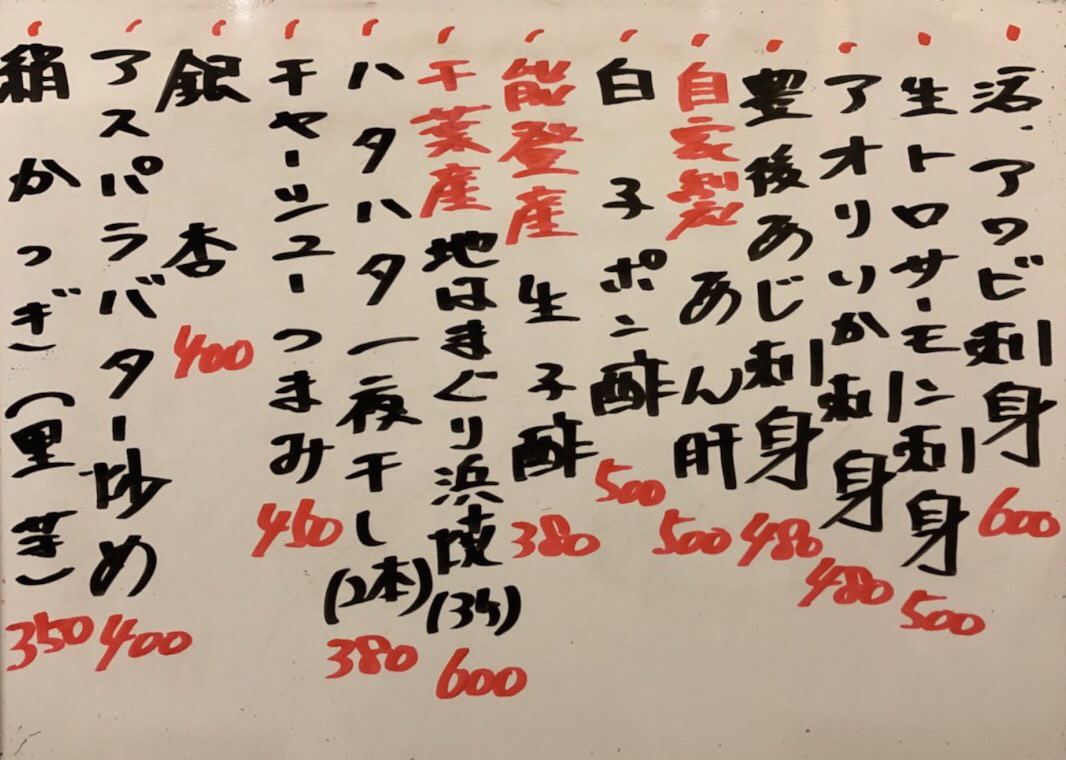 活アワビ刺身 600
生トロサーモン刺身 500
アオリいか刺身 480
豊後あじ刺身 480
自家製 あん肝 500
白子ポン酢 500
能登産 生子酢 380
千葉産 地はまぐり浜焼(3ケ) 600
ハタハタ一夜干し(2本) 380
チャーシューつまみ 450
銀杏 400
アスパラバター炒め 400
絹かつぎ(里芋) 350